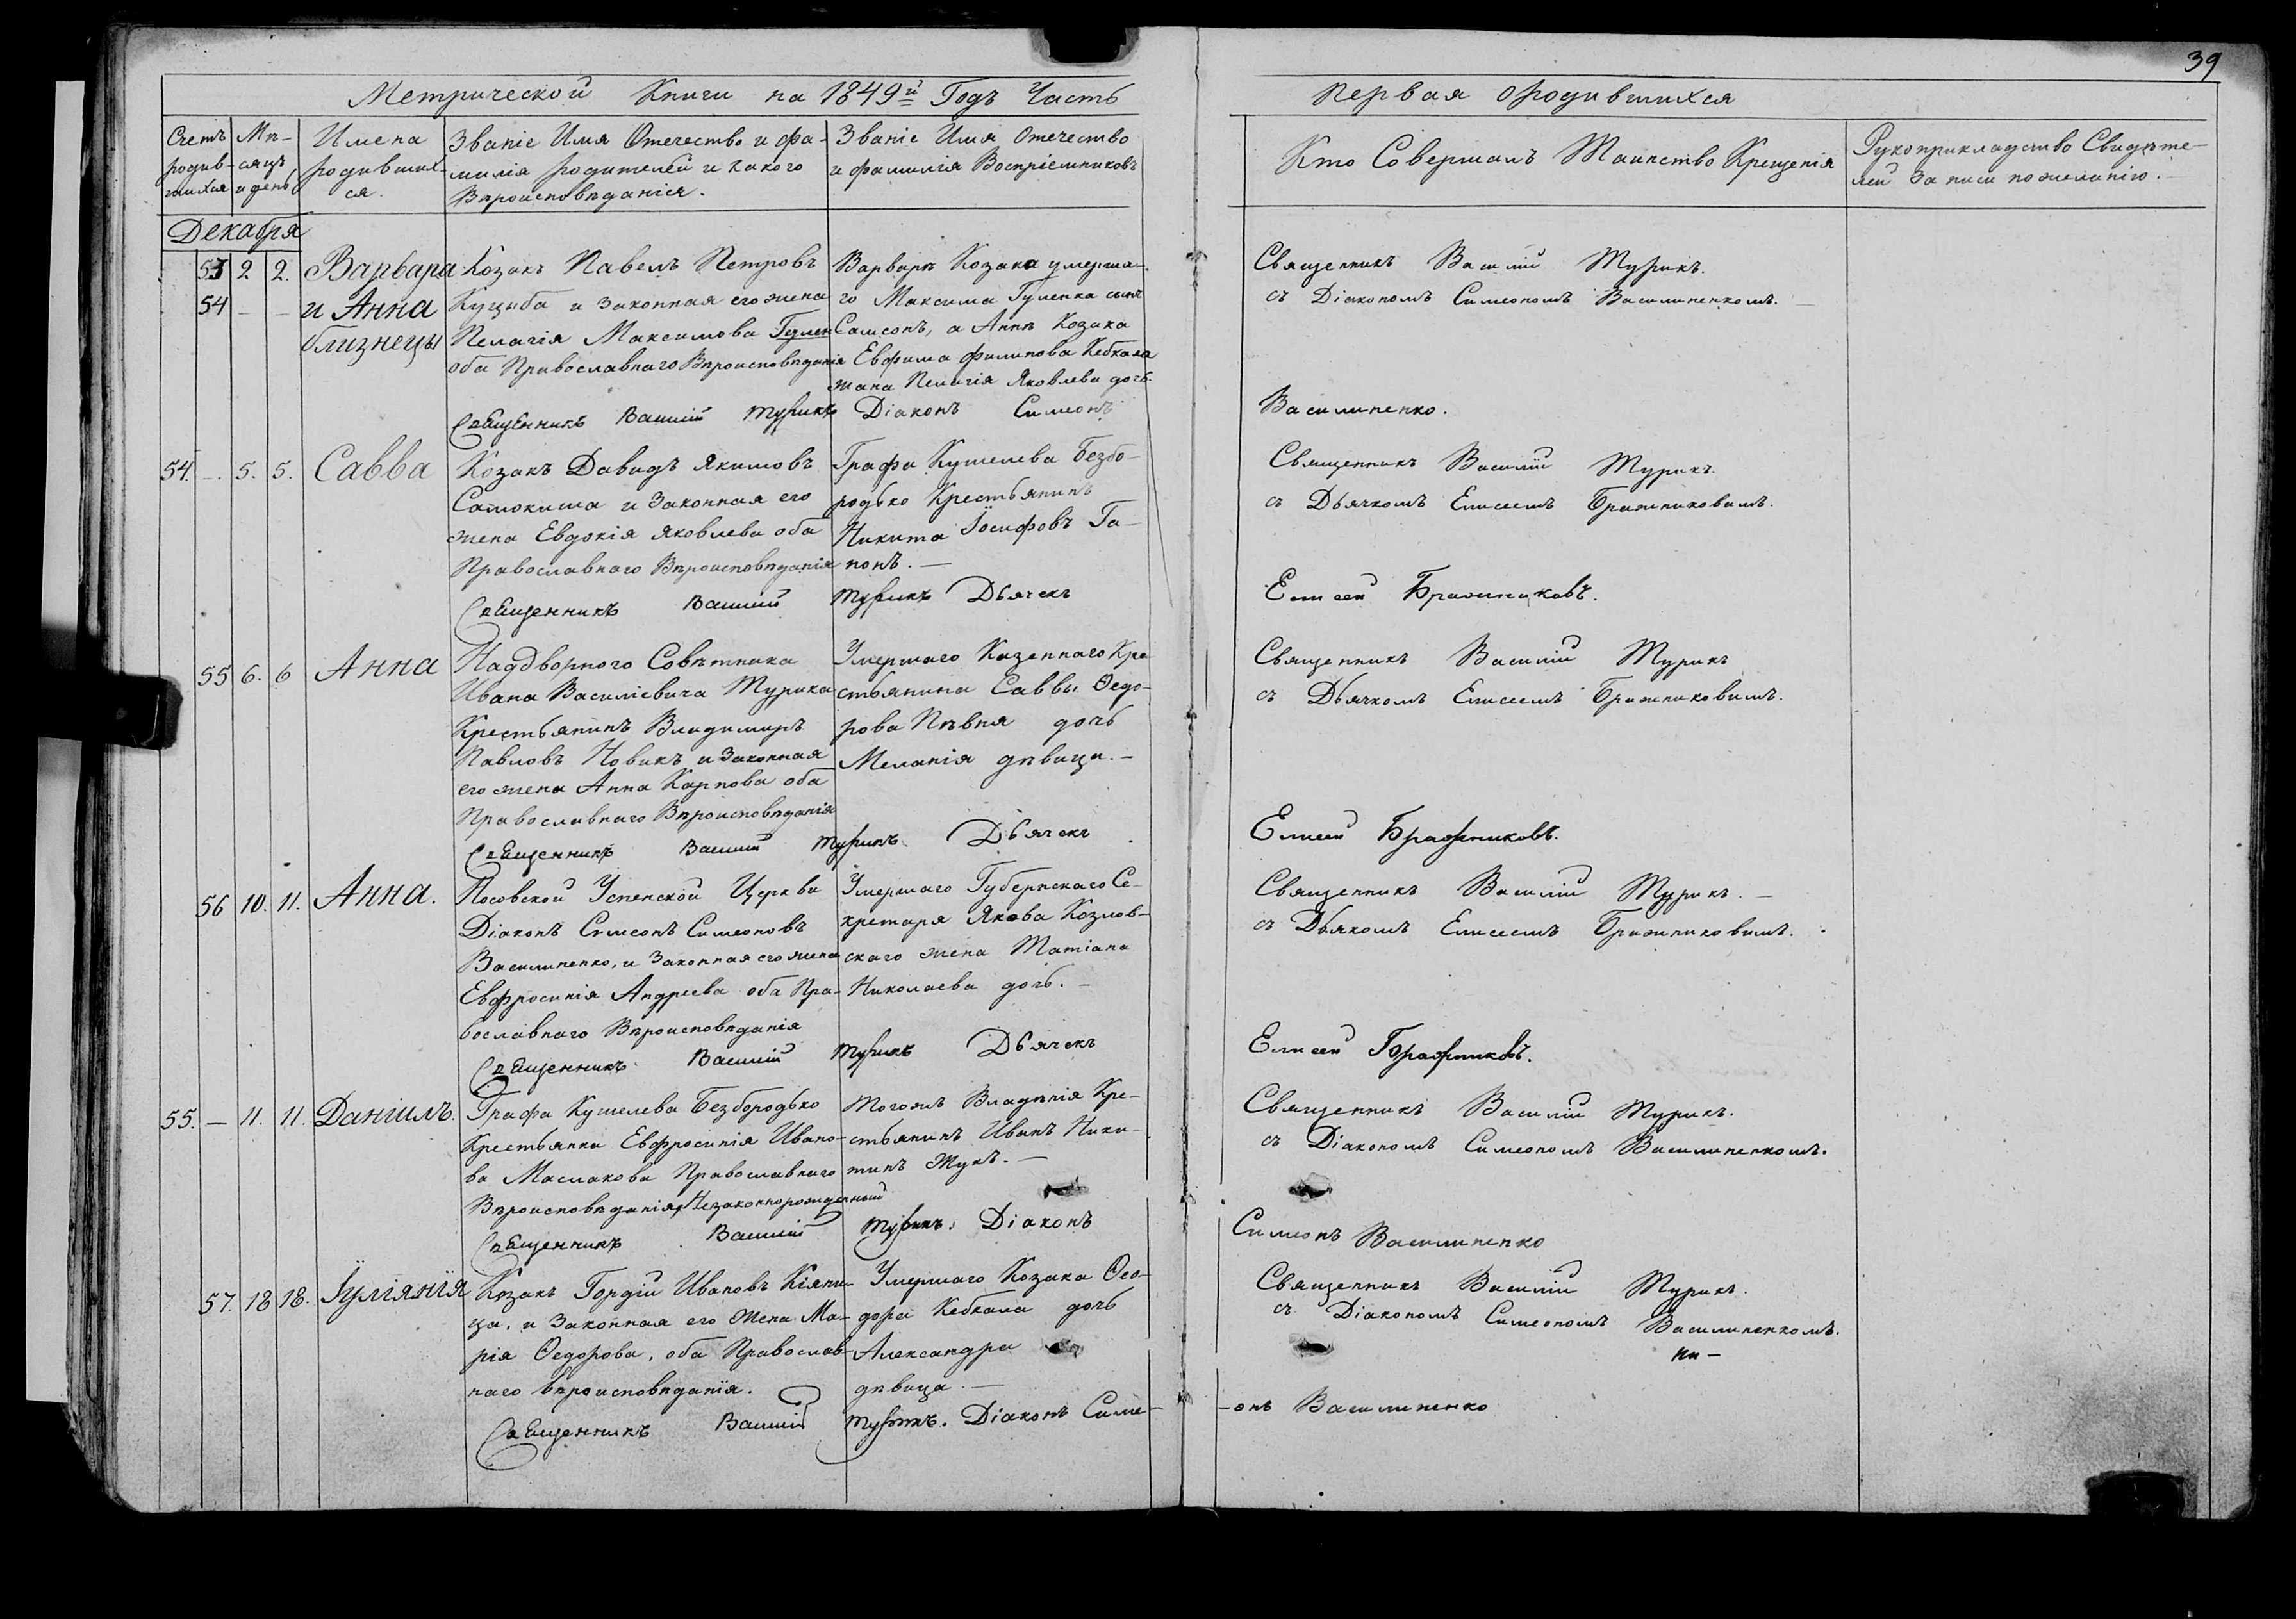 39
Метрической Книги на 1849й Годъ Часть
Первая о родившихся
Счетъ родив-шихся
Мѣ-сяцъ и день
Имена родивших-ся.
Званіе Имя Отечество и фа-
милія родителей и какого
Вѣроисповѣданія.
Званіе Имя Отечество
и фамилія Воспріемниковъ
Кто Совершалъ Таинство Крещенія
Рукоприкладство Свидѣте-
лей записи по желанію.
Декабря
53 2 2. Варвара
54 – – и Анна
близнецы
Козакъ Павелъ Петровъ
Куцыба и Законная его жена
Пелагія Максимова Гулен
оба Православнаго Вѣроисповѣданія
Варвары Козака умерша-
го Максима Гуленка сынъ
Самсонъ, а Анны Козака
Евфима Филипова Кебкала
жана Пелагія Яковлева дочь.
Священникъ Василій Турикъ.
съ Діакономъ Симеономъ Василиненкомъ. –
Священникъ Василій Турикъ Діаконъ Симеонъ
Василиненко.
54. – 5. 5. Савва
Козакъ Давидъ Якимовъ
Самокиша и Законная его
жена Евдокія Яковлева оба
Православнаго Вѣроисповѣданія
Графа Кушелева Безбо-
родько Крестьянинъ
Никита Іосифовъ Га-
понъ. –
Священникъ Василій Турикъ.
съ Дьячкомъ Елисеемъ Бражниковымъ.
Священникъ Василій Турикъ Дьячекъ
Елисей Бражниковъ.
55 6. 6 Анна
Надворного Совѣтника
Ивана Василіевича Турика
Крестьянинъ Владимиръ
Павловъ Новикъ и Законная
его жена Анна Карпова оба
Православнаго Вѣроисповѣданія
Умершаго Казеннаго Кре
стьянина Саввы Ѳедо-
рова Пѣвня дочь
Меланія дѣвица. –
Священникъ Василій Турикъ
съ Дьячкомъ Елисеемъ Бражниковымъ.
Священникъ Василій Турикъ Дьячекъ
Елисей Бражниковъ.
56 10. 11. Анна.
Носовской Успенской Церкви
Діаконъ Симеонъ Симеоновъ
Василиненко, и Законная его жена
Евфросинія Андреева оба Пра-
вославнаго Вѣроисповѣданія
Умершаго Губернскаго Се-
кретаря Якова Козлов-
скаго жена Татіана
Николаева дочь. –
Священникъ Василій Турикъ. –
съ Дьякомъ Елисеемъ Бражниковымъ.
Священникъ Василій Турикъ Дьячекъ
Елисей Бражниковъ.
55. – 11. 11. Даніилъ.
Графа Кушелева Безбородько
Крестьянка Евфросинія Ивано-
ва Маслакова Православнаго
Вѣроисповѣданія, Незаконнорожденный
Тогожъ Владѣнія Кре-
стьянинъ Иванъ Ники-
тинъ Жукъ. –
Священникъ Василій Турикъ.
съ Діакономъ Симеономъ Василиненкомъ.
Священникъ Василій Турикъ. Діаконъ
Симеонъ Василиненко
57. 18 18. Іуліянія
Козакъ Гордій Ивановъ Кіяни-
ца, и Законная его жена Ма-
рія Ѳедорова, оба Православ-
наго вѣроисповѣданія.
Умершаго Козака Ѳео-
дора Кебкала дочь
Александра
дѣвица. –
Священникъ Василій Турикъ.
съ Діакономъ Симеономъ Василиненкомъ.
Священникъ Василій Турикъ. Діаконъ Симе-
-онъ Василиненко